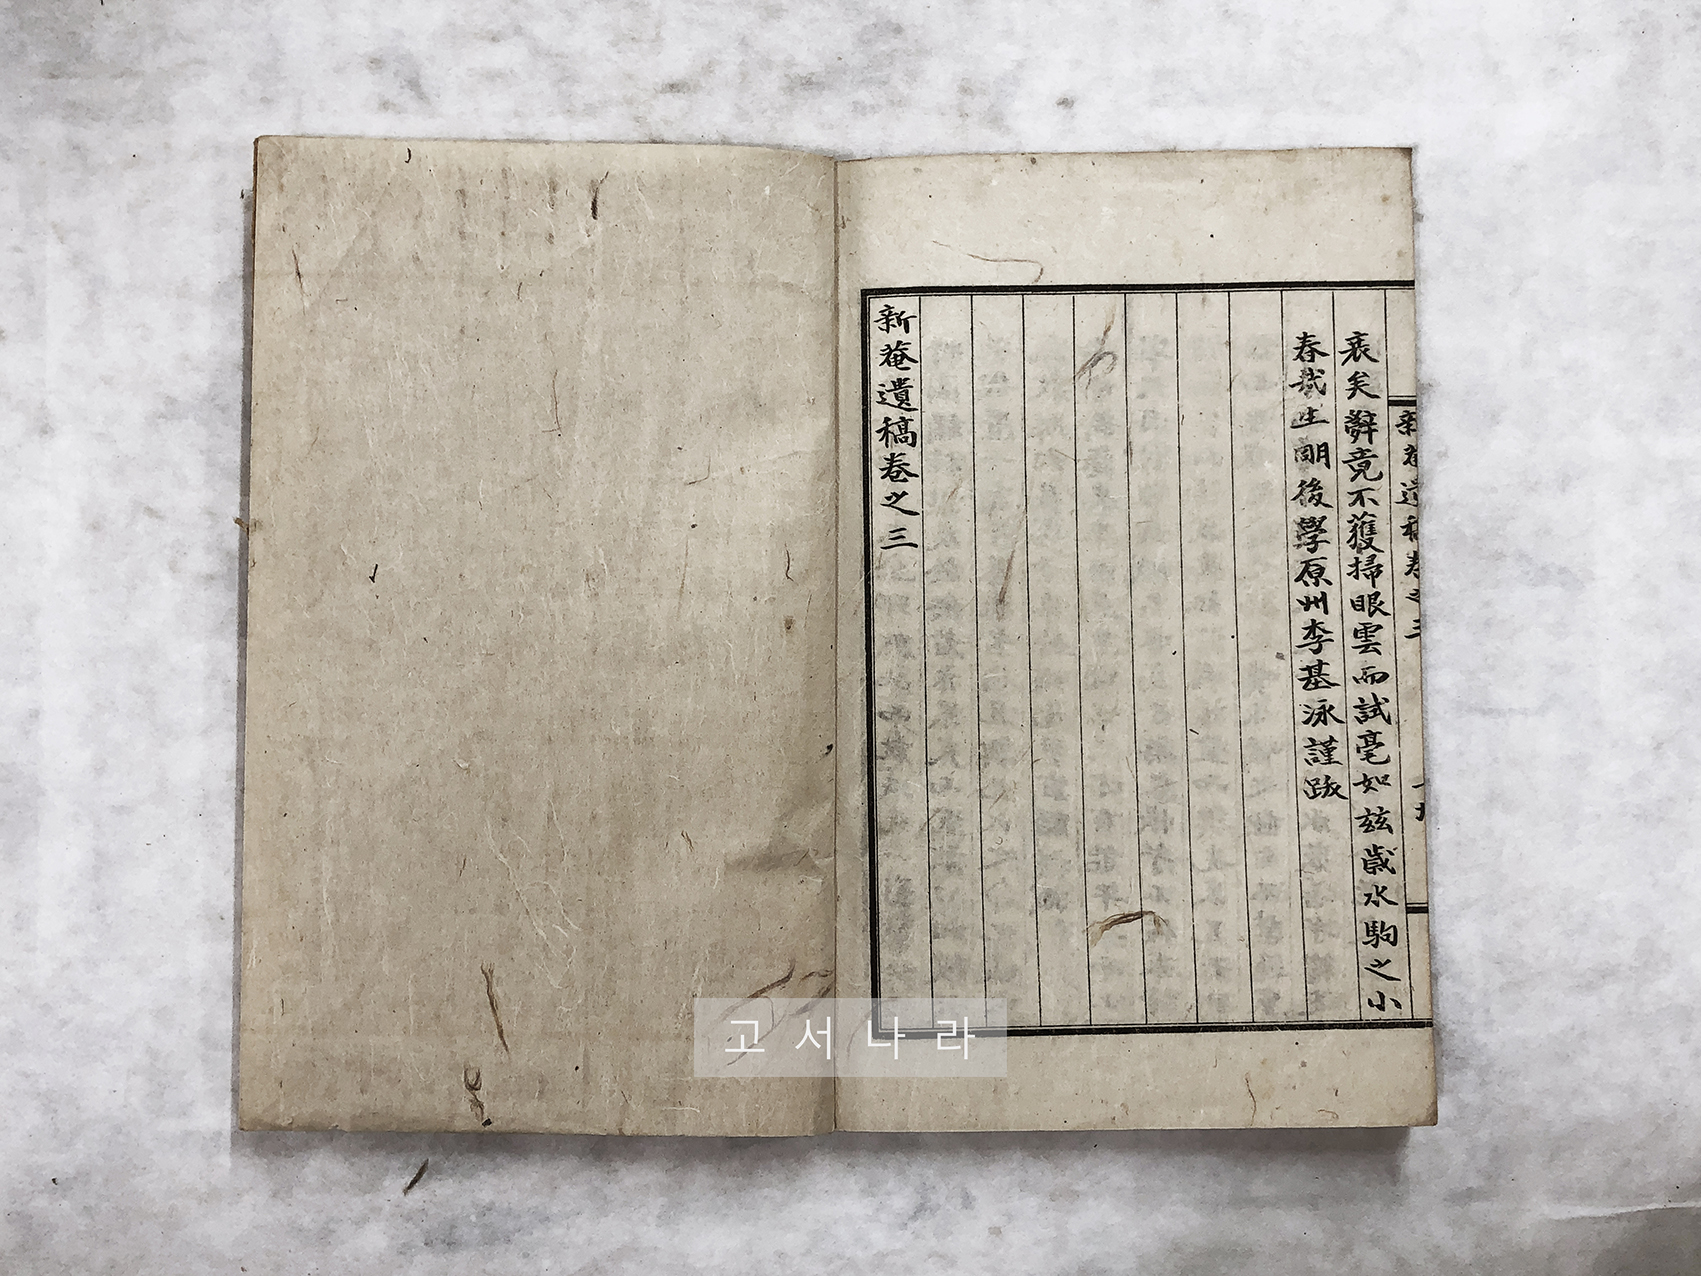 新菴遺稿卷之三
衰矣辭竟不獲掃眼雲而試毫如玆歲水駒之小
春哉生明後學原州李基泳謹跋
新菴遺稿卷之三
고서나라